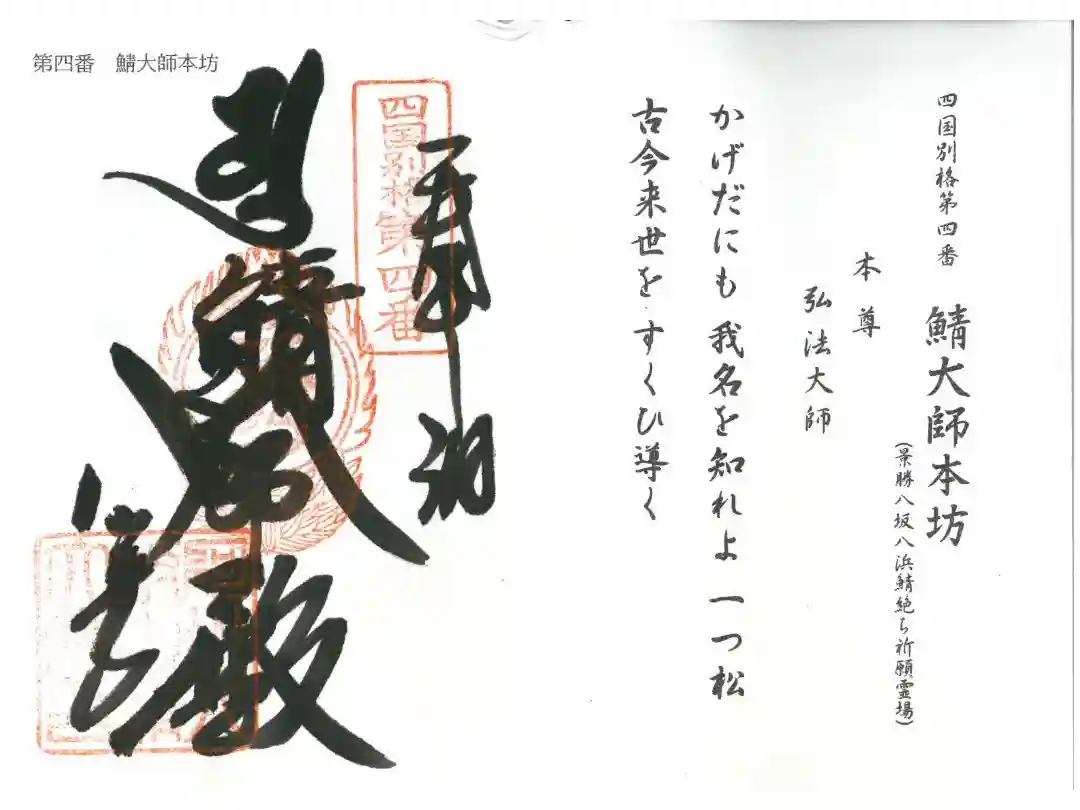 四国別格第四番
鯖大師本坊
(景勝八坂八浜鯖絶ち祈願霊場)
本尊
弘法大師
かげだにも 我名を知れよ 一つ松
古今来世を すくひ導く
第四番 鯖大師本坊
奉納
四国別格第四番
鯖大師